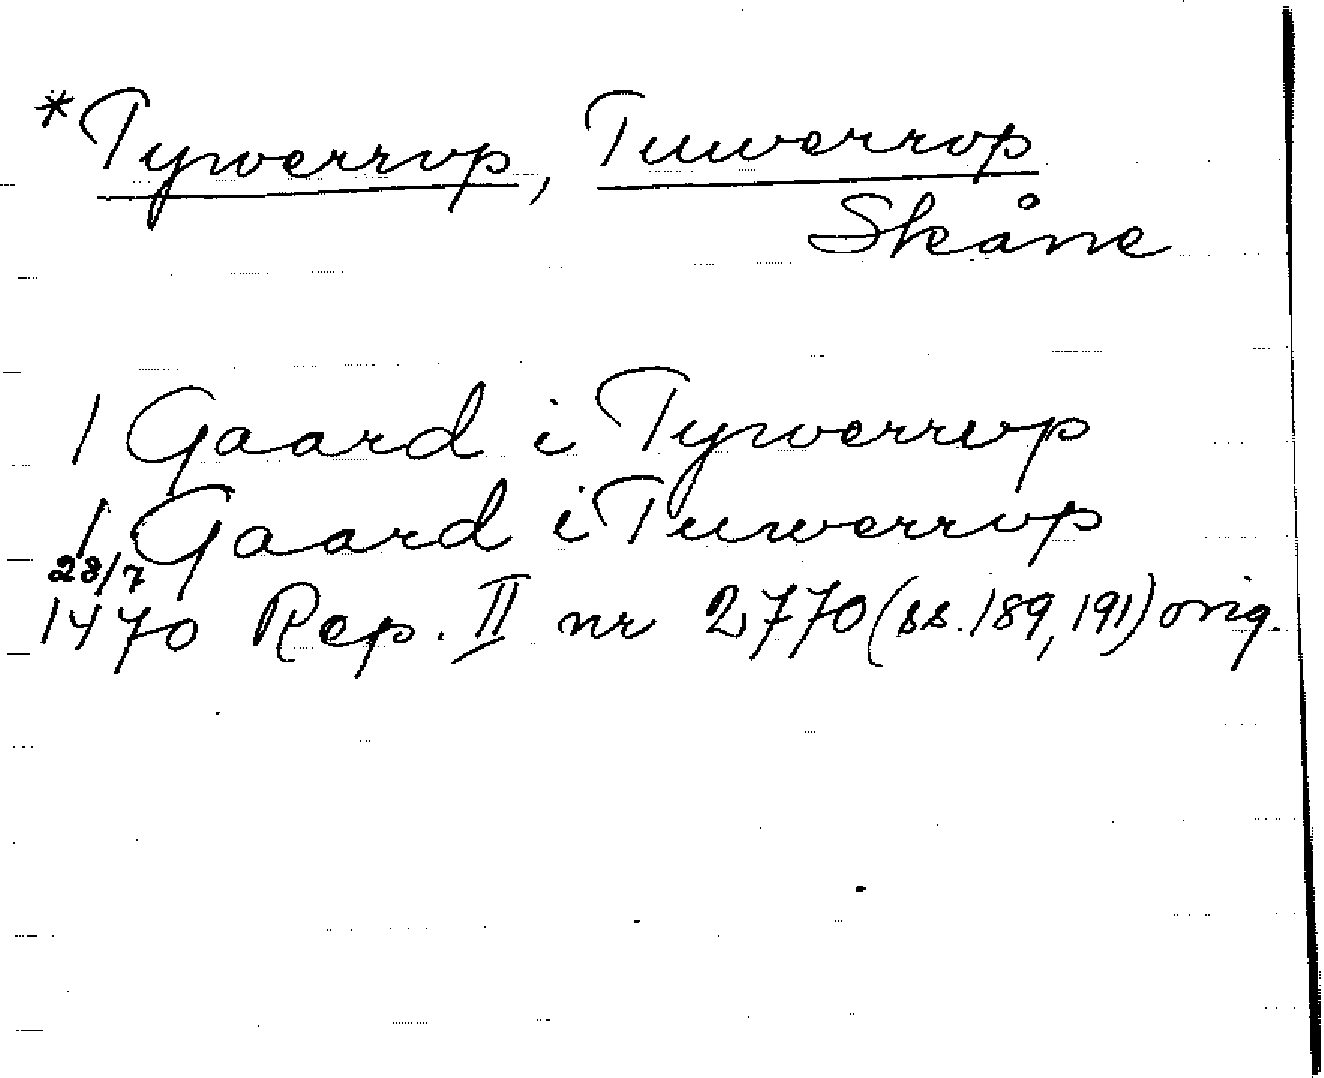 *Tywerrvp, Tuwerrvp
Skåne
1 Gaard i Tywerrvp
1 Gaard i Tuwerrvp
23/7
1470 Rep. II nr 2770 (ss. 189, 191) orig.